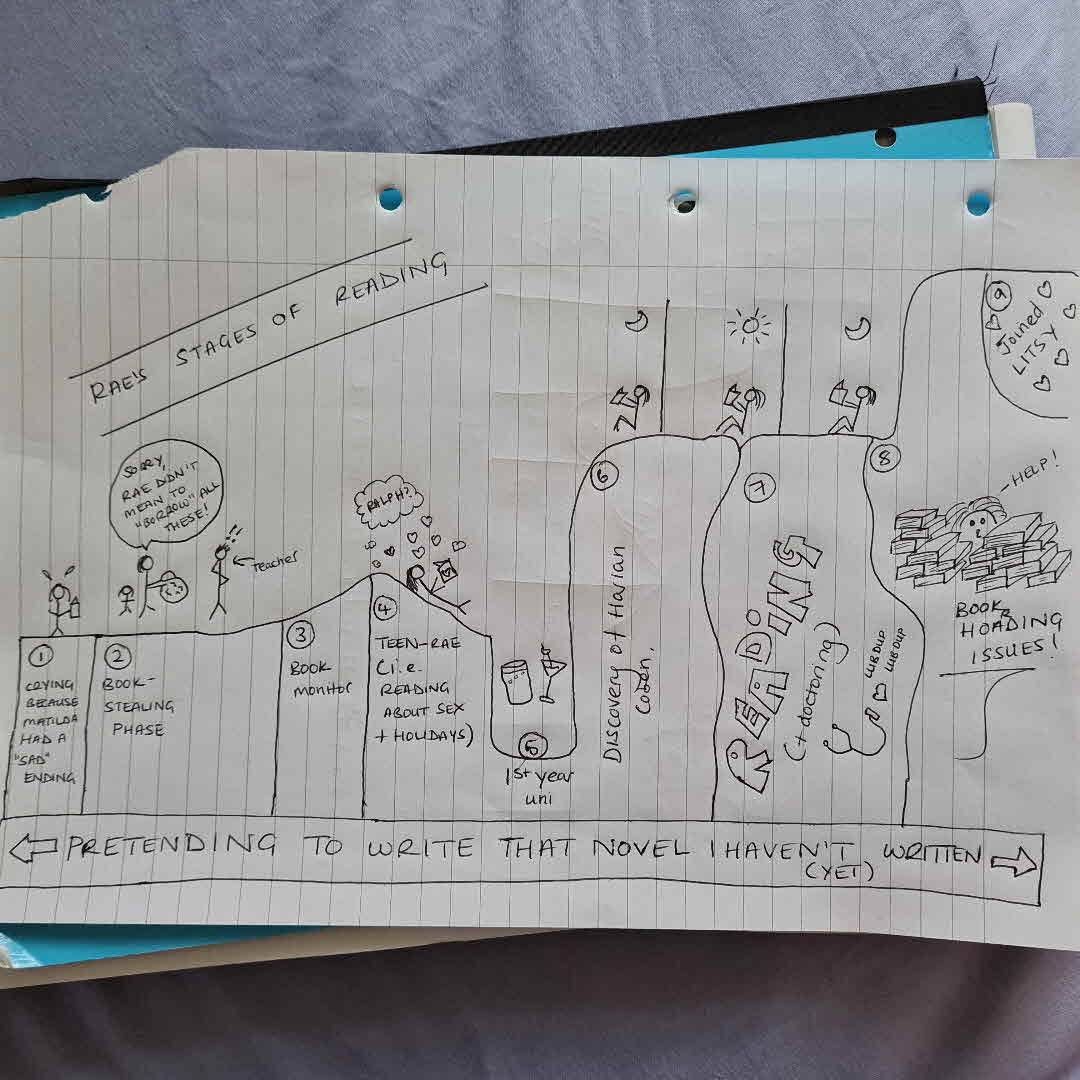 RAE'S STAGES OF READING
SORRY,
RAE DIDN'T
MEAN TO
"BORROW" ALL
THESE!
Teacher
RALPH?
1
CRYING
BECAUSE
MATILDA
HAD A
"SAD"
ENDING
2
BOOK-
STEALING
PHASE
3
BOOK
monitor
4
TEEN-RAE
(i.e.
READING
ABOUT SEX
+ HOLIDAYS)
5
1st year
uni
6
Discovery of Harlan
Coben.
7
READING
(+ doctoring)
LUB DUP
LUB DUP
8
HELP!
BOOK
HOARDING
ISSUES!
9
Joined
LITSY
PRETENDING TO WRITE THAT NOVEL I HAVEN'T WRITTEN
(YET)